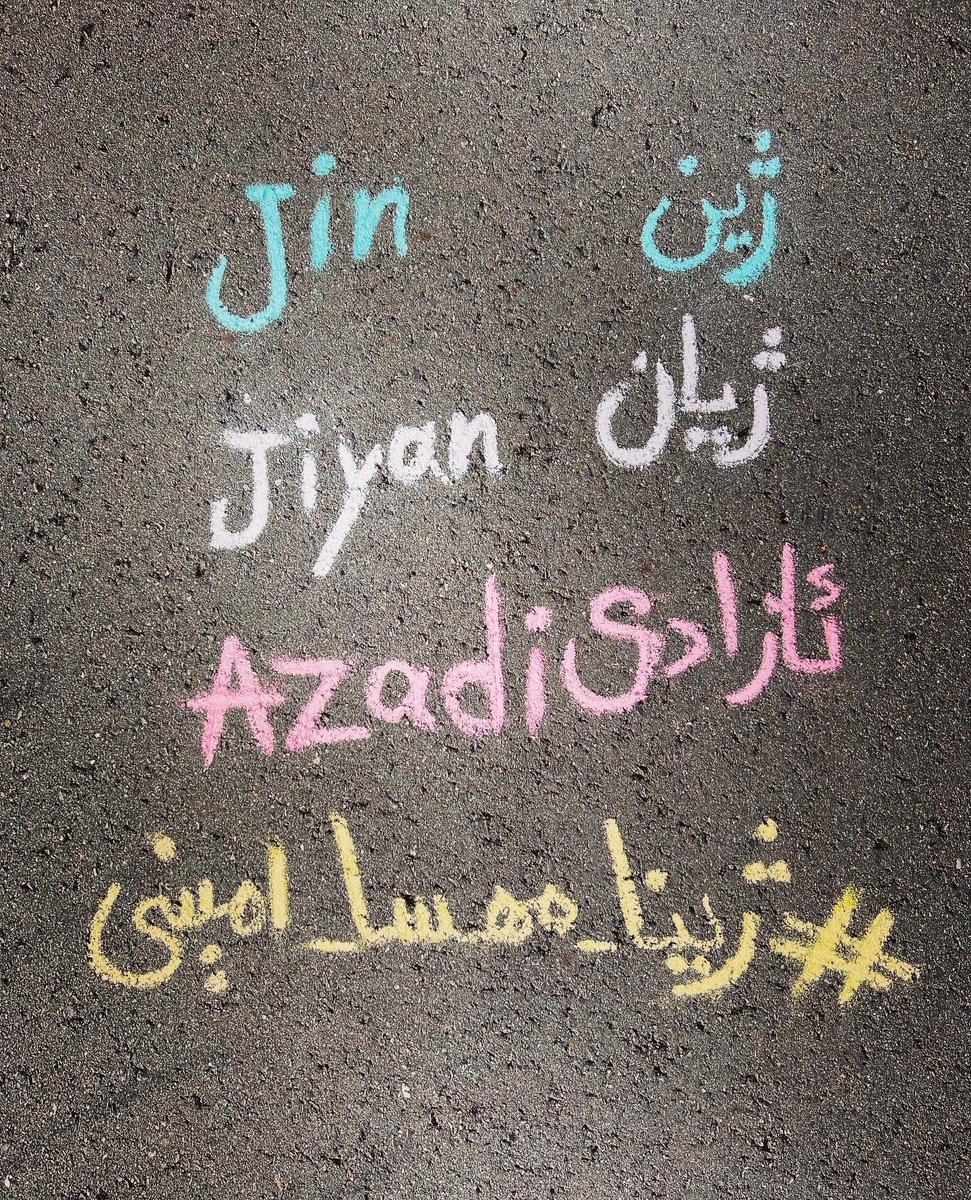 Jin ژین
Jiyan ژیان
Azadi ئازادی
#ژینا_مهسا_امینی